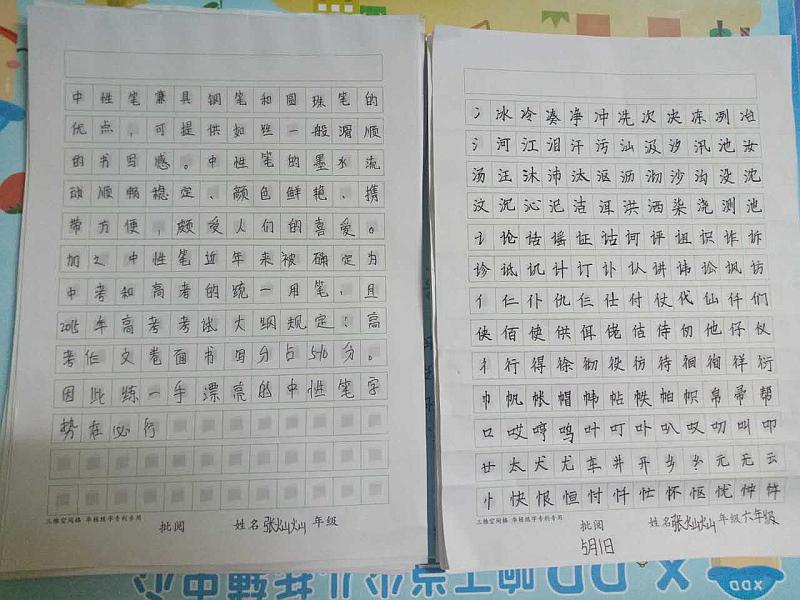 中性笔兼具钢笔和圆珠笔的
优点，可提供如些一般润顺
的书写感。中性笔的墨水流
动顺畅稳定、颜色鲜艳、携
带方便，颇受人们的喜爱。
加之中性笔近年来被确定为
中考和高考的统一用笔，且
2015年高考考试大纲规定：高
考作文卷面书写分占5%10分。
因此练一手漂亮的中性笔字
势在必行
三维空间格 华核练字专利专用
批阅 姓名张灿灿年级
冫冰冷凑净冲冼次决冻冽冶
氵河江泪汗污汕汲汐汛池汝
汤汪沫沛汰沤沥沏沙沟没沈
汶沉沁汜洁洱洪洒染浇测池
讠论诂谣证诂诃评诅识诈诉
诊诋讥计订讣认讲讳讼讽访
亻仁仆仇仨仕付仗代仙仟们
侠佰使供佴佬估侍仞他仔仪
彳行得徐彻役彷待徊徇徉衍
巾帆帐帽帏帖帙帕帜帛帚帮
口哎哼鸣叶叮卟叭哎叨叫叩
廿太犬尤车井开元无云
忄快恨恒忖忏忙怀怄忧忡
三维空间格 华核练字专利专用
批阅 姓名张灿灿年级六年级
5月1日
XDD